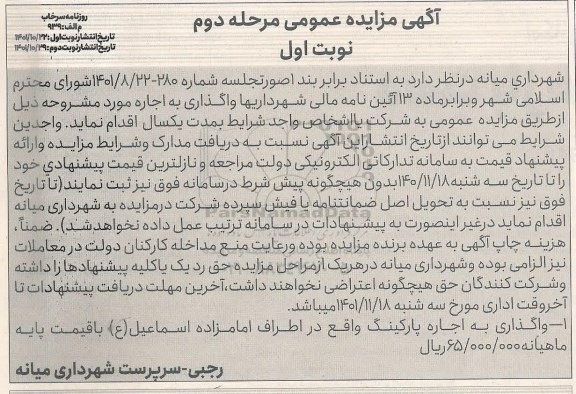 آگهی مزایده عمومی مرحله دوم
نوبت اول
روزنامه سرخاب
م الف: ۹۳۹
تاریخ انتشار نوبت اول: ۱۴۰۱/۱۰/۲۲
تاریخ انتشار نوبت دوم: ۱۴۰۱/۱۰/۲۹
شهرداری میانه درنظر دارد به استناد برابر بند ۱صورتجلسه شماره ۲۸۰-۱۴۰۱/۸/۲۲شورای محترم
اسلامی شهر وبرابرماده ۱۳ آئین نامه مالی شهرداریها واگذاری به اجاره مورد مشروحه ذیل
ازطریق مزایده عمومی به شرکت یااشخاص واجد شرایط بمدت یکسال اقدام نماید. واجدین
شرایط می توانند ازتاریخ انتشاراین آگهی نسبت به دریافت مدارک وشرایط مزایده وارائه
پیشنهاد قیمت به سامانه تدارکاتی الکترونیکی دولت مراجعه و نازلترین قیمت پیشنهادی خود
را تا تاریخ سه شنبه۱۴۰۱/۱۱/۱۸بدون هیچگونه پیش شرط درسامانه فوق نیز ثبت نمایند(تا تاریخ
فوق نیز نسبت به تحویل اصل ضمانتنامه یا فیش سپرده شرکت درمزایده به شهرداری میانه
اقدام نماید درغیر اینصورت به پیشنهادات در سامانه ترتیب عمل داده نخواهدشد). ضمناً،
هزینه چاپ آگهی به عهده برنده مزایده بوده ورعایت منع مداخله کارکنان دولت در معاملات
نیز الزامی بوده وشهرداری میانه درهریک ازمراحل مزایده حق رد یک یاکلیه پیشنهادها راداشته
وشرکت کنندگان حق هیچگونه اعتراضی نخواهند داشت،آخرین مهلت دریافت پیشنهادات تا
آخروقت اداری مورخ سه شنبه ۱۴۰۱/۱۱/۱۸میباشد.
۱—واگذاری به اجاره پارکینگ واقع در اطراف امامزاده اسماعیل(ع) باقیمت پایه
ماهیانه۶۵/۰۰۰/۰۰۰ریال
رجبی-سرپرست شهرداری میانه
ParsNamadData